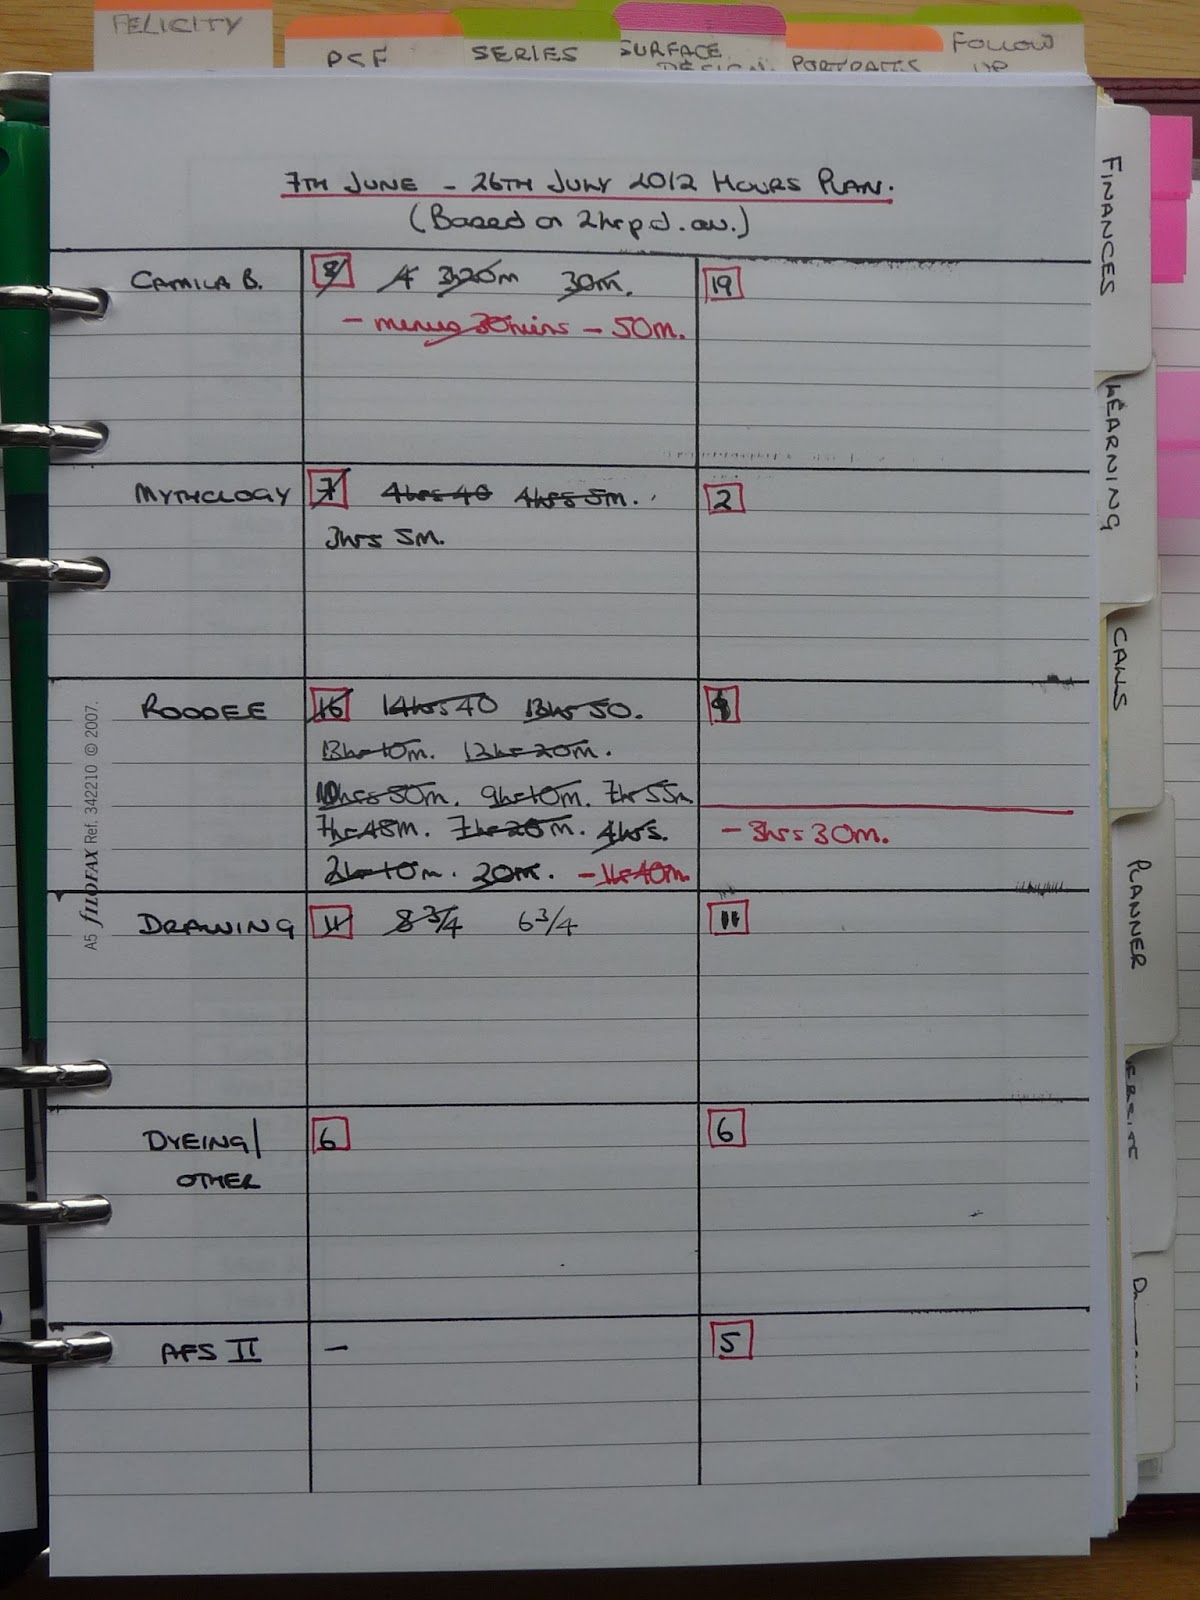 FELICITY
PSF
SERIES
SURFACE
DESIGN
PORTRAITS
FOLLOW
UP
7TH JUNE - 26TH JULY 2012 HOURS PLAN.
(Based on 2hr p.d. av.)
CAMILA B. 8 4 3h20m 30m. 19
- menus 30mins - 50m.
MYTHOLOGY 7 4hrs 40 4hrs 5m. 2
3hrs 5m.
ROODEE 16 14hrs 40 13hr 50.
13hr 10m. 12hr 20m.
10hrs 50m. 9hr 10m. 7hr 55m
7hr 48m. 7hr 20m. 4hrs. - 3hrs 30m.
2hr 10m. 20m. - 1hr 40m
DRAWING 11 8 3/4 6 3/4 11
DYEING/ 6 6
OTHER
AFS II - 5
A5 FILOFAX Ref. 342210 © 2007.
FINANCES
LEARNING
CANS
PLANNER